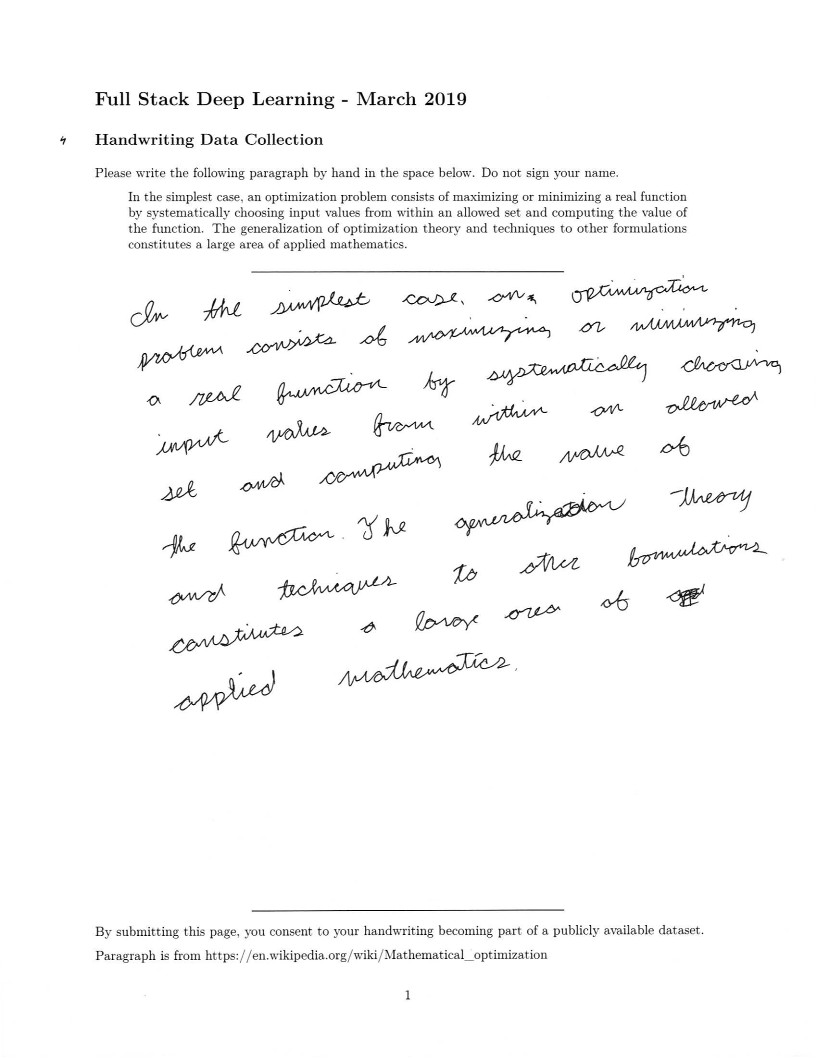 Full Stack Deep Learning - March 2019
Handwriting Data Collection
Please write the following paragraph by hand in the space below. Do not sign your name.
In the simplest case, an optimization problem consists of maximizing or minimizing a real function
by systematically choosing input values from within an allowed set and computing the value of
the function. The generalization of optimization theory and techniques to other formulations
constitutes a large area of applied mathematics.
In the simplest case, an optimization
problem consists of maximizing or minimizing
a real function by systematically choosing
input values from within an allowed
set and computing the value of
the function. The generalization theory
and techniques to other formulations
constitutes a large area of
applied mathematics.
By submitting this page, you consent to your handwriting becoming part of a publicly available dataset.
Paragraph is from https://en.wikipedia.org/wiki/Mathematical_optimization
1